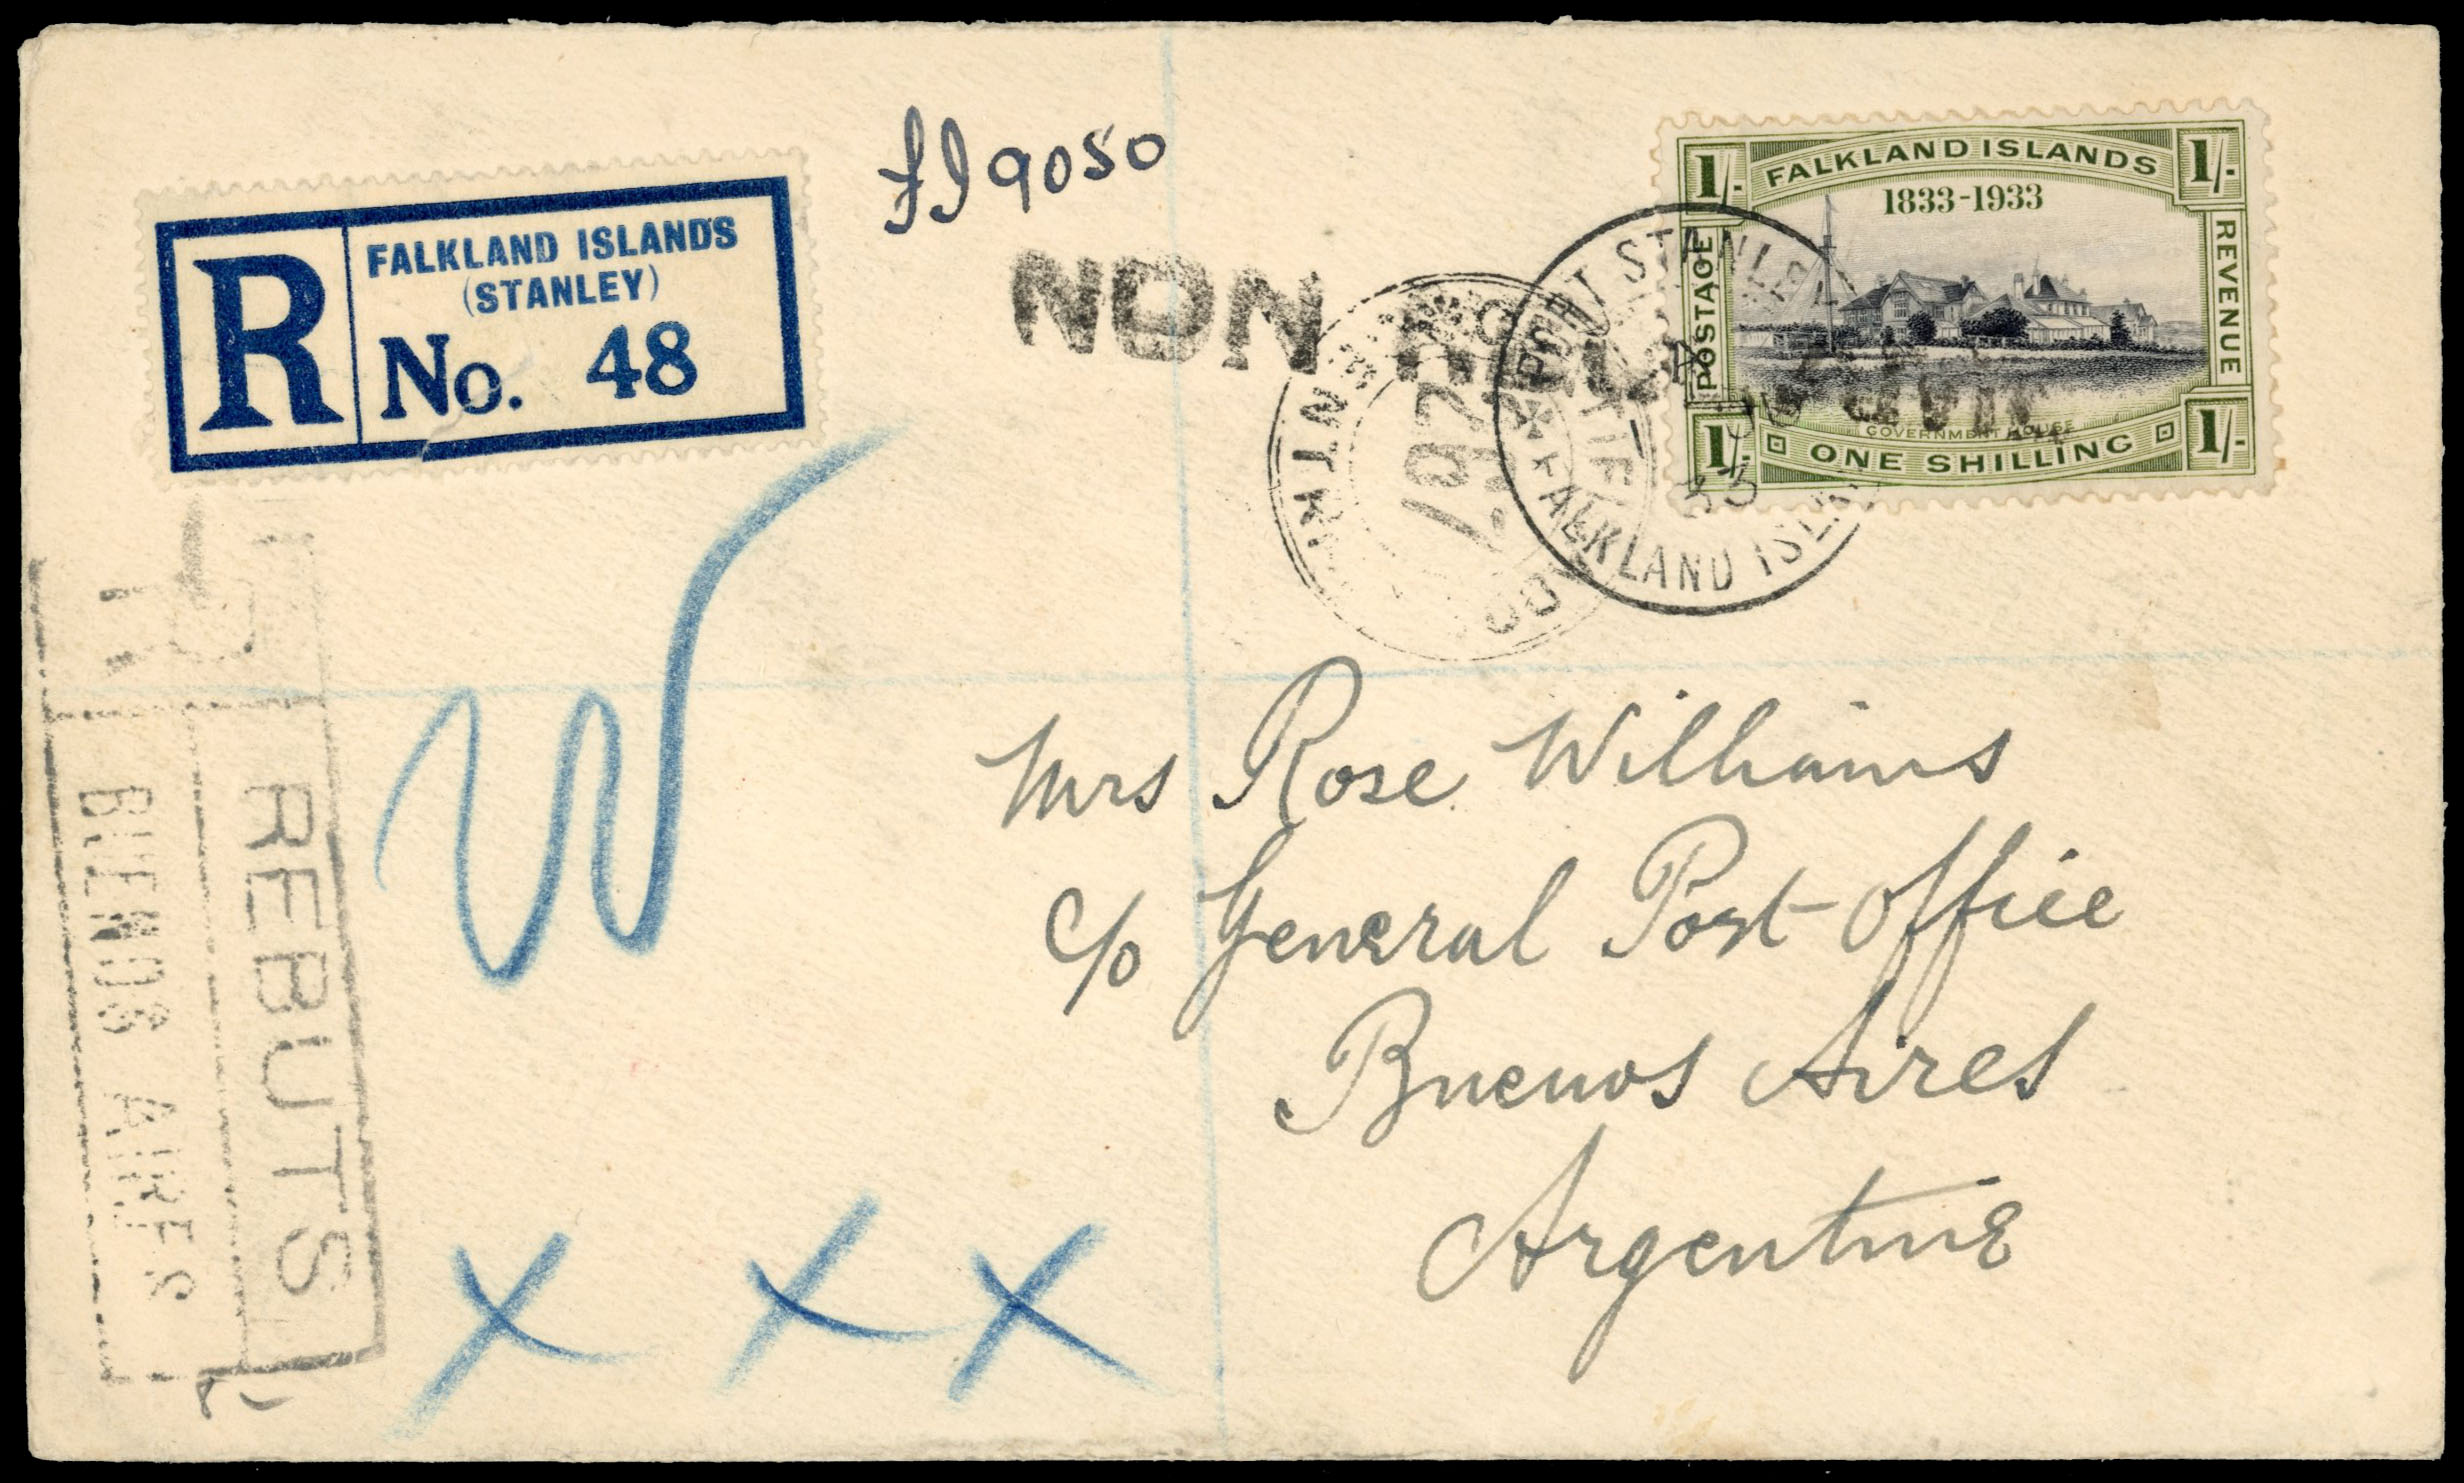 R
FALKLAND ISLANDS
(STANLEY)
No. 48
9050
NON
FALKLAND ISLANDS
1833-1933
1/- 1/-
POSTAGE
REVENUE
GOVERNMENT HOUSE
1/- 1/-
ONE SHILLING
STANLEY
33
FALKLAND ISL
Mrs Rose Williams
c/o General Post Office
Buenos Aires
Argentine
W
x x x
REBUTS
BUENOS AIRES
R